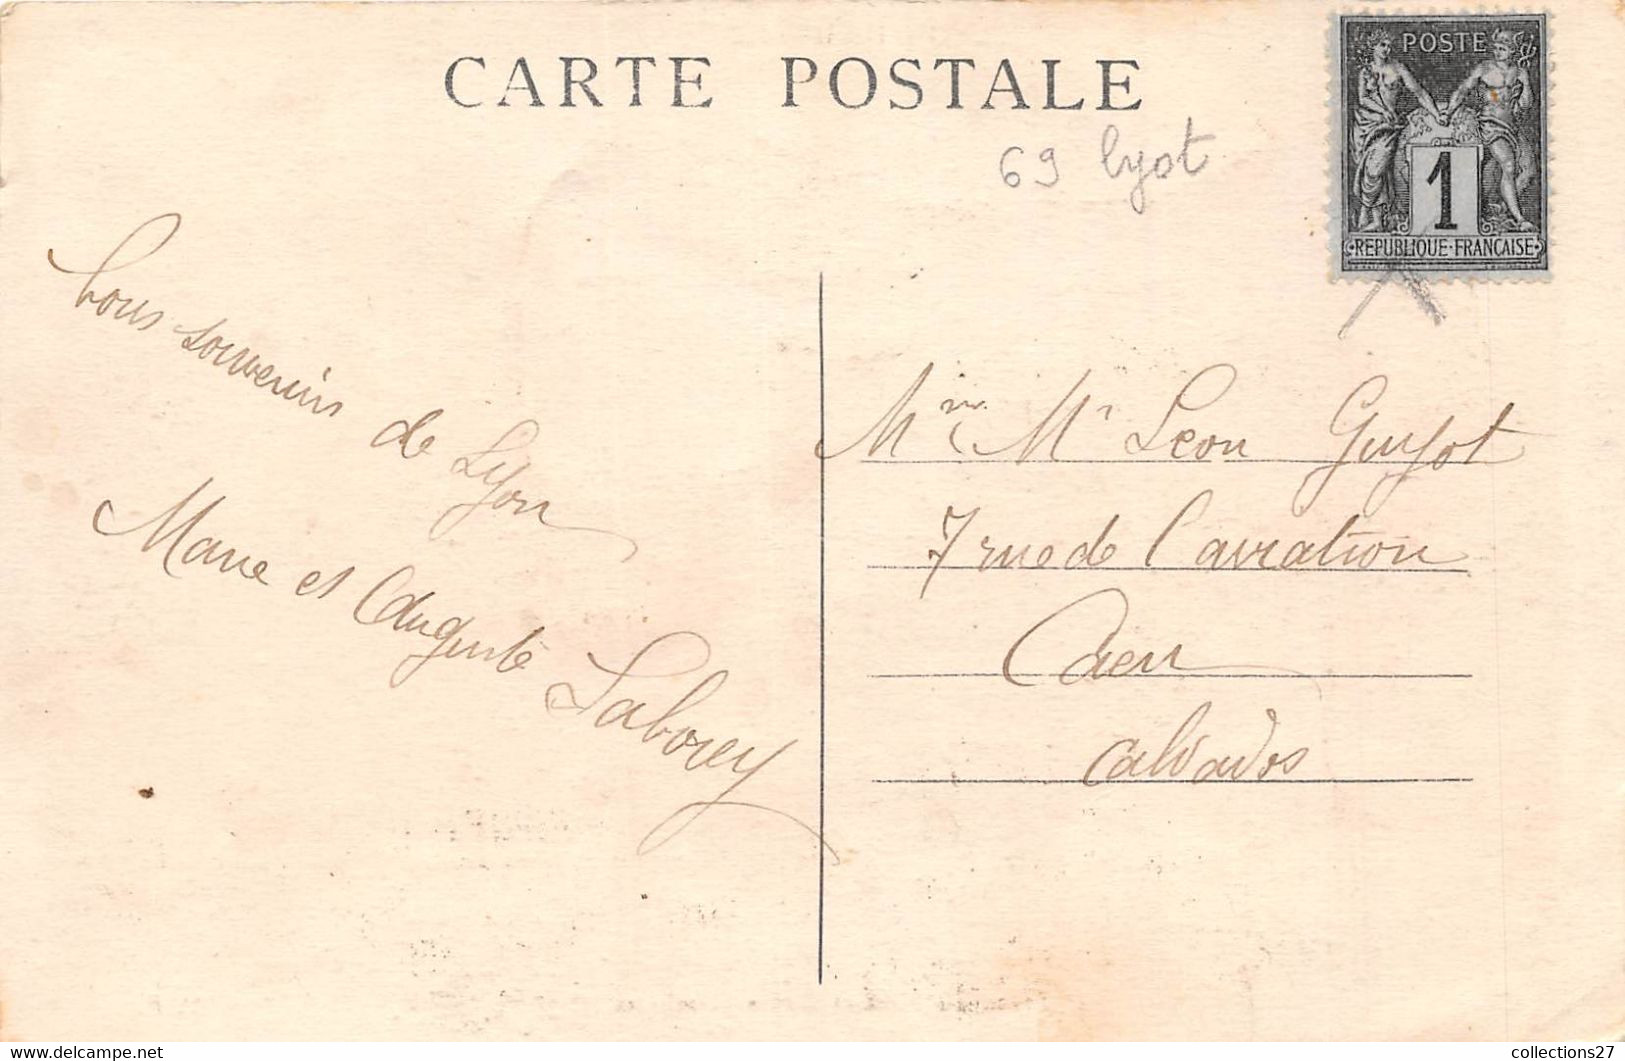 CARTE POSTALE
POSTE
1
REPUBLIQUE FRANCAISE
69 Lyot
bons souvenirs
de Lyon
Marie et Auguste
Laborey
Mr Léon Guyot
7 rue de l'aviation
Caen
Calvados
collections27